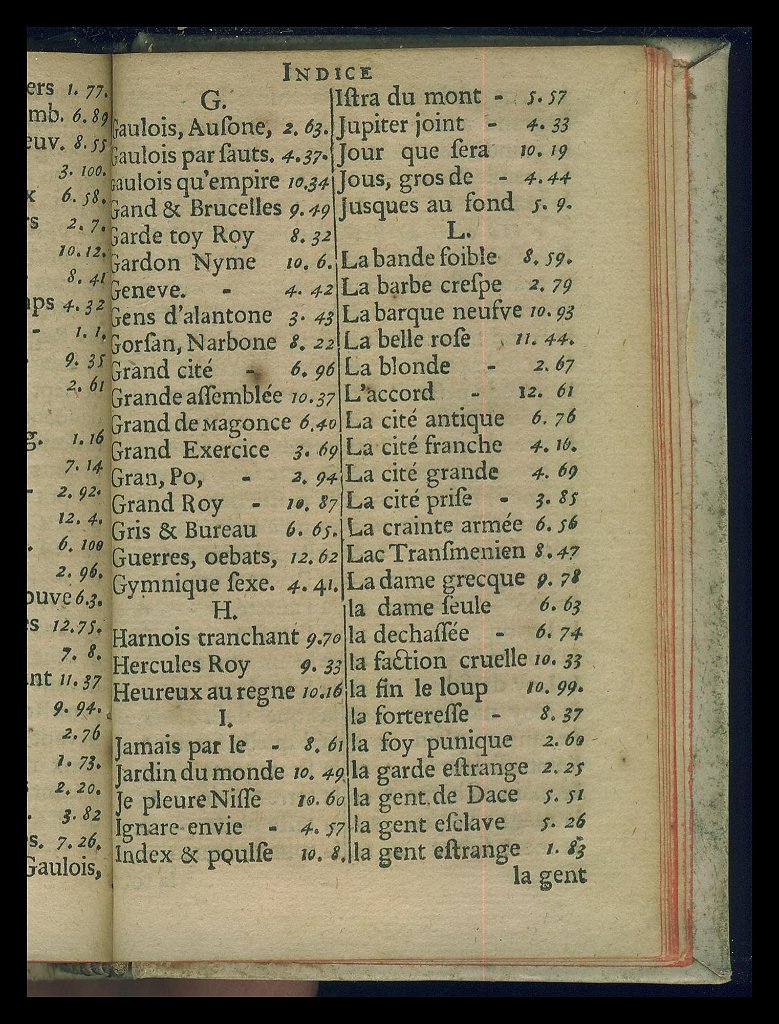 ers 1. 77.
mb. 6. 89
euv. 8. 55
3. 100.
x 6. 58.
rs 2. 7.
10. 12.
8. 41
ps 4. 32
- 1. 1.
9. 35
2. 61
g. 1. 16
7. 14
- 2. 92.
12. 4.
. 6. 100
2. 96.
ouve 6.3.
es 12.75.
7. 8.
nt 11. 37
9. 94.
2. 76
1. 73.
2. 20.
. 3. 82
s. 7. 26.
Gaulois,
INDICE
G.
Gaulois, Auſone, 2. 63.
Gaulois par ſauts. 4.37.
Gaulois qu'empire 10.34
Gand & Brucelles 9. 49
Garde toy Roy 8. 32
Gardon Nyme 10. 6.
Geneve. - 4. 42
Gens d'alantone 3. 43
Gorſan, Narbone 8. 22
Grand cité - 6. 96
Grande aſſemblée 10.37
Grand de Magonce 6.40
Grand Exercice 3. 69
Gran, Po, - 2. 94
Grand Roy - 10. 87
Gris & Bureau 6. 65.
Guerres, oebats, 12. 62
Gymnique ſexe. 4. 41.
H.
Harnois tranchant 9.70
Hercules Roy 9. 33
Heureux au regne 10.16
I.
Jamais par le - 8. 61
Jardin du monde 10. 49
Je pleure Niſſe 10. 60
Ignare envie - 4. 57
Index & poulſe 10. 8.
Iſtra du mont - 5. 57
Jupiter joint - 4. 33
Jour que ſera 10. 19
Jous, gros de - 4. 44
Jusques au fond 5. 9.
L.
La bande foible 8. 59.
La barbe creſpe 2. 79
La barque neufve 10. 93
La belle roſe 11. 44.
La blonde - 2. 67
L'accord - 12. 61
La cité antique 6. 76
La cité franche 4. 16.
La cité grande 4. 69
La cité priſe - 3. 85
La crainte armée 6. 56
Lac Tranſmenien 8. 47
La dame grecque 9. 78
la dame ſeule 6. 63
la dechaſſée - 6. 74
la faction cruelle 10. 33
la fin le loup 10. 99.
la fortereſſe - 8. 37
la foy punique 2. 60
la garde eſtrange 2. 25
la gent de Dace 5. 51
la gent eſclave 5. 26
la gent eſtrange 1. 83
la gent